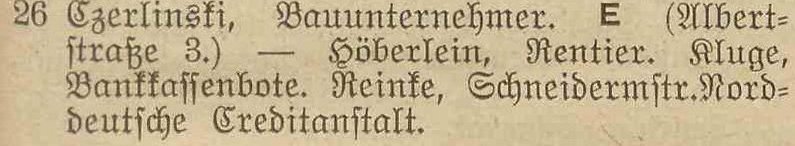 26 Czerlinski, Bauunternehmer. E (Albert-
straße 3.) — Höberlein, Rentier. Kluge,
Bankkassenbote. Reinke, Schneidermstr.Nord-
deutsche Creditanstalt.